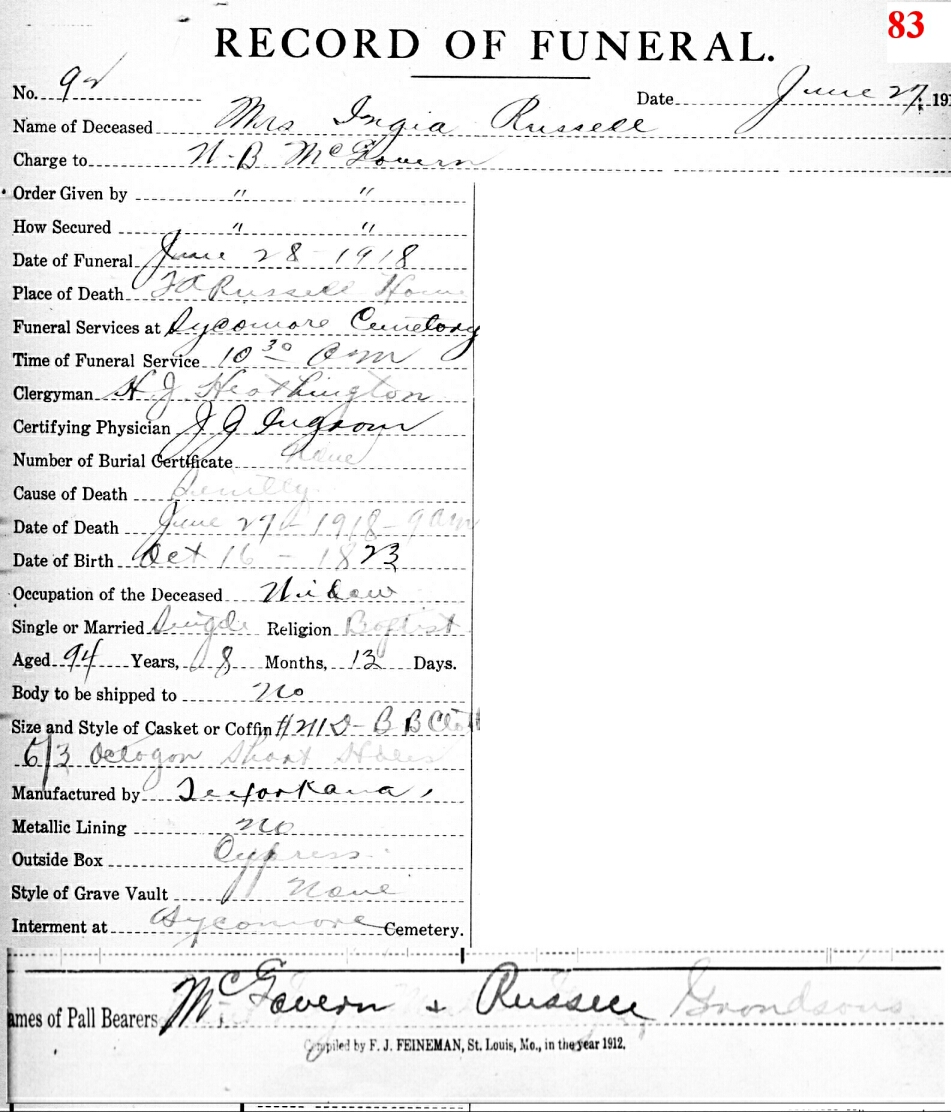 83
RECORD OF FUNERAL.
No. 92 Date June 27, 191
Name of Deceased Mrs Ingia Russell
Charge to N. B McGovern
Order Given by " "
How Secured " "
Date of Funeral June 28 - 1918
Place of Death Russell Home
Funeral Services at Sycomore Cemetory
Time of Funeral Service 10 30 am
Clergyman H J Heathington
Certifying Physician J J Ingram
Number of Burial Certificate None
Cause of Death
Date of Death June 27th 1918 - 9 am
Date of Birth Oct 16 - 1823
Occupation of the Deceased Widow
Single or Married Single Religion Baptist
Aged 94 Years, 8 Months, 12 Days.
Body to be shipped to No
Size and Style of Casket or Coffin
6/3 Octogon Short
Manufactured by Texarkana,
Metallic Lining No
Outside Box Cypress
Style of Grave Vault None
Interment at Sycomore Cemetery.
ames of Pall Bearers McGovern & Russell Grondsons
Compiled by F. J. FEINEMAN, St. Louis, Mo., in the year 1912.